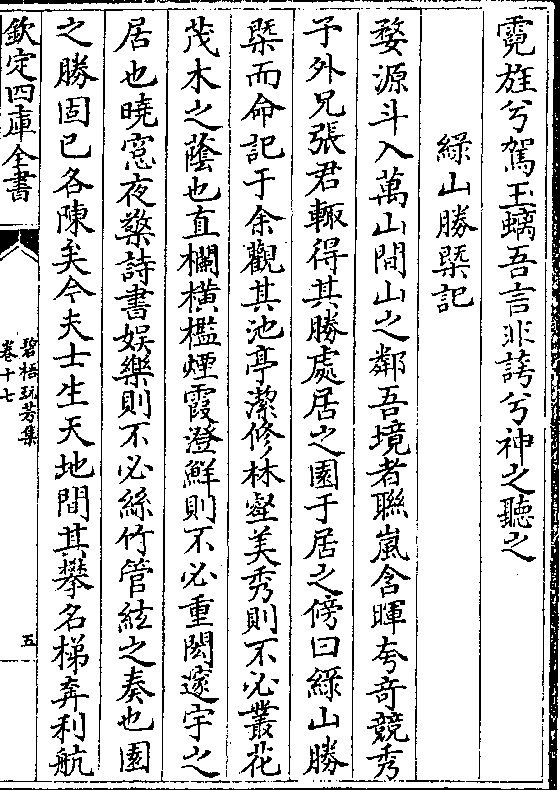 霓旌兮駕玉螭吾言非誇兮神之聽之
綠山勝槩記
婺源斗入萬山間山之鄰吾境者聯嵐含暉夸竒競秀
予外兄張君輙得其勝處居之園于居之傍曰綠山勝
槩而命記于余觀其池亭潔修林壑美秀則不必叢花
茂木之蔭也直欄橫檻煙霞澄鮮則不必重閎邃宇之
居也曉窓夜檠詩書娯樂則不必絲竹管絃之奏也園
之勝固已各陳矣今夫士生天地間其攀名梯奔利航
欽定四庫全書
碧梧玩芳集
卷十七
五